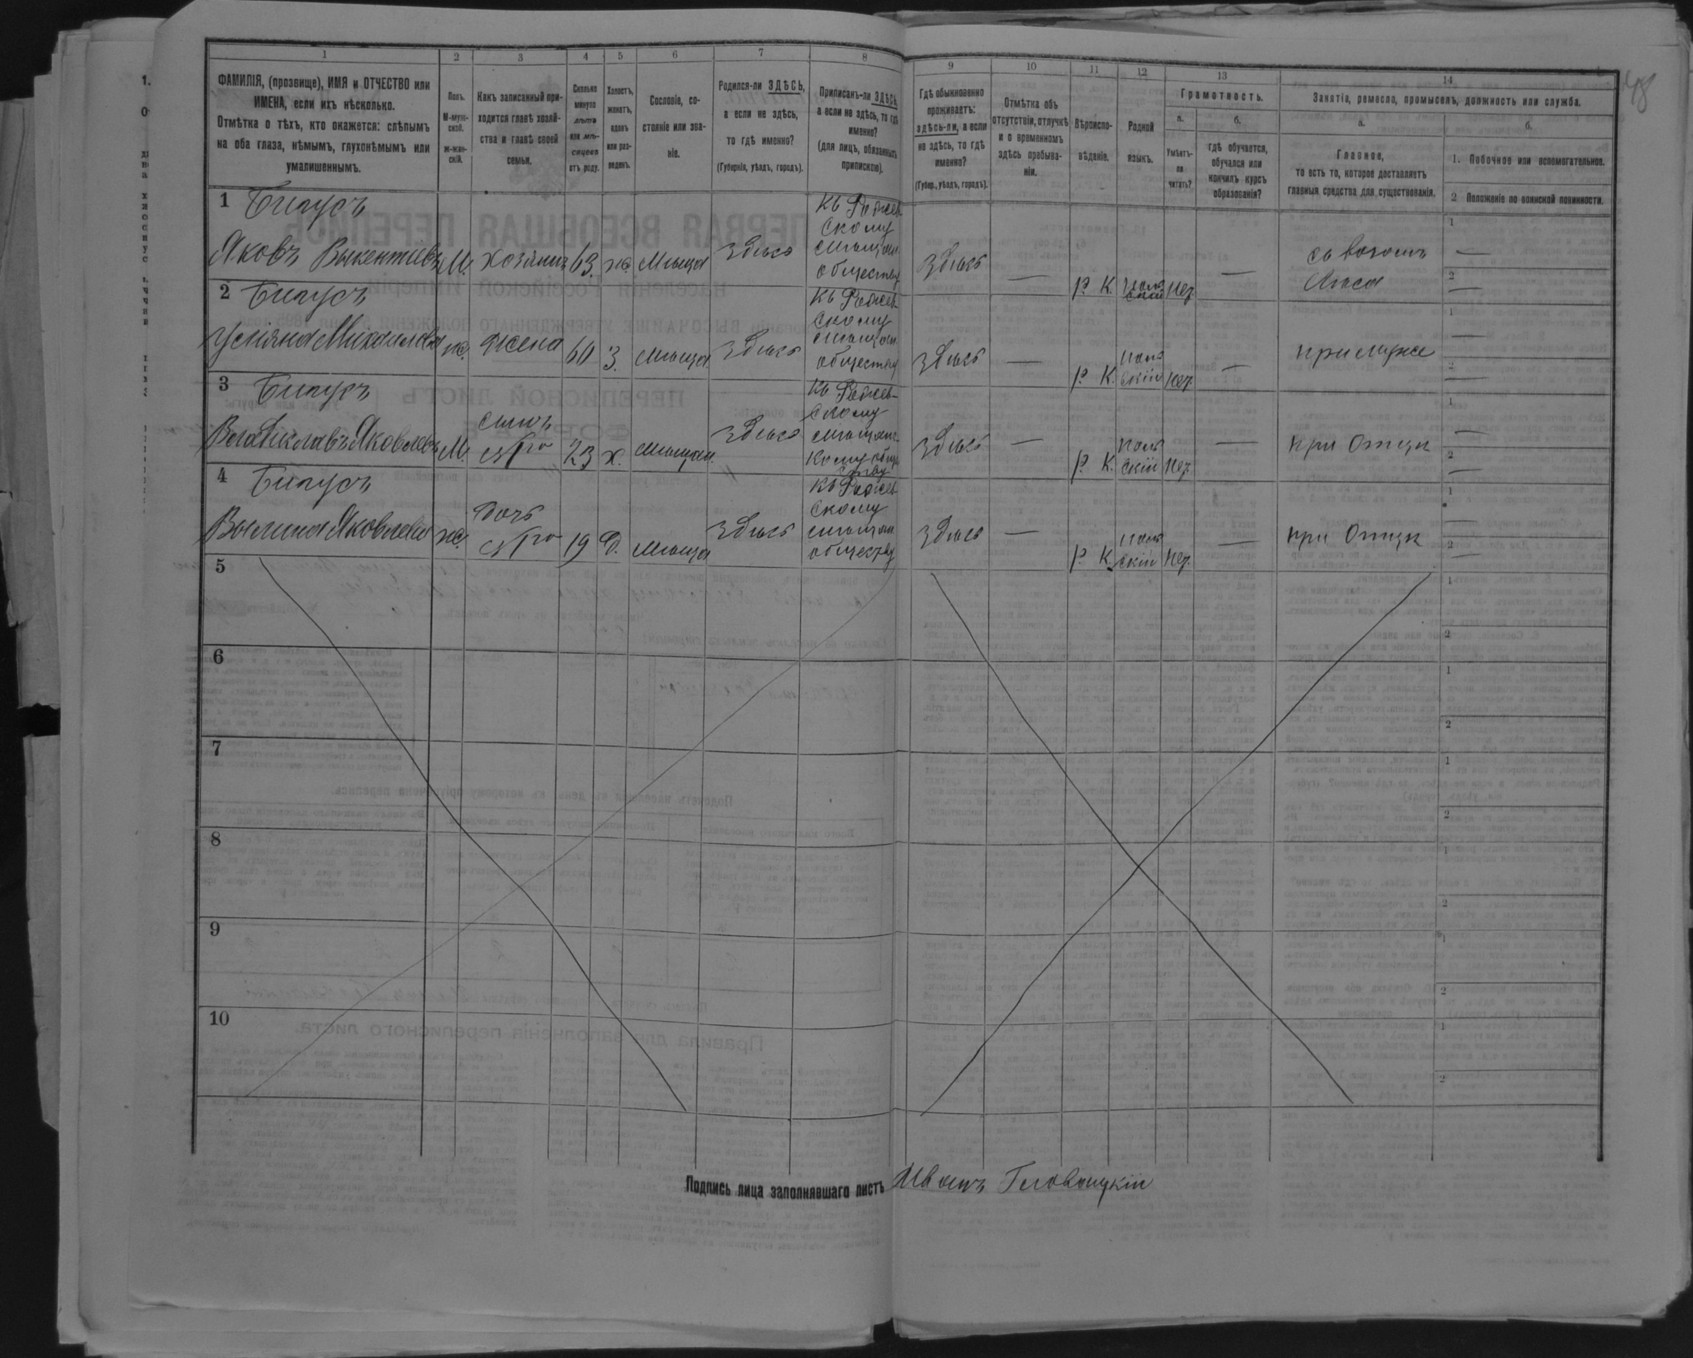 1 2 3 4 5 6 7 8 9 10 11 12 13 14
48
ФАМИЛІЯ, (прозвище), ИМЯ и ОТЧЕСТВО или
ИМЕНА, если ихъ нѣсколько.
Отмѣтка о тѣхъ, кто окажется: слѣпымъ
на оба глаза, нѣмымъ, глухонѣмымъ или
умалишеннымъ.
Полъ.
М-муж-
ской.
ж-жен-
скій.
Какъ записанный при-
ходится главѣ хозяй-
ства и главѣ своей
семьи.
Сколько
минуло
лѣтъ
или мѣ-
сяцевъ
отъ роду.
Холостъ,
женатъ,
вдовъ
или раз-
веденъ.
Сословіе, со-
стояніе или зва-
ніе.
Родился-ли ЗДѢСЬ,
а если не здѣсь,
то гдѣ именно?
(Губернія, уѣздъ, городъ).
Приписанъ-ли ЗДѢСЬ,
а если не здѣсь, то гдѣ
именно?
(для лицъ, обязанныхъ
припискою).
Гдѣ обыкновенно
проживаетъ:
здѣсь-ли, а если
не здѣсь, то гдѣ
именно?
(Губер., уѣздъ, городъ).
Отмѣтка объ
отсутствіи, отлучкѣ
и о временномъ
здѣсь пребыва-
ніи.
Вѣроиспо-
вѣданіе.
Родной
языкъ.
Грамотность.
а.
Умѣетъ-
ли
читать?
б.
гдѣ обучается,
обучался или
кончилъ курсъ
образованія?
Занятіе, ремесло, промыселъ, должность или служба.
а.
Главное,
то есть то, которое доставляетъ
главныя средства для существованія.
б.
1. Побочное или вспомогательное.
2 Положеніе по воинской повинности.
1 Бипусъ
Яковъ Викентіевъ М. хозяинъ 63 ж. Мѣщан здѣсь
къ Рожев
скому
мѣщан
обществу
здѣсь — Р. К. поль
скій нет — 
1 —
2 —
2 Бипусъ
Михайлова ж. жена 60 З. мѣщан здѣсь
къ Рожев
скому
мѣщан
обществу
здѣсь — Р. К. поль
скій нет — при мужѣ
1 —
2 —
3 Бипусъ
Яковлевъ М. сынъ
23 х. мѣщан здѣсь
къ Рожев-
скому
мѣщанс
кому общ
здѣсь — Р. К. поль
скій нет — при Отцѣ
1 —
2 —
4 Бипусъ
Яковлева ж. дочь
19 д. мѣщан здѣсь
къ Рожев
скому
мѣщан
обществу
здѣсь — Р. К. поль
скій нет — при Отцѣ
1 —
2 —
5
1
2
6
1
2
7
1
2
8
1
2
9
1
2
10
1
2
Подпись лица заполнявшаго листъ Иванъ Головацкій